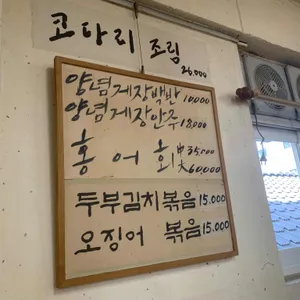 코다리 조림
26,000
양념게장백반 10,000
양념게장안주 18,000
홍어회 中 35,000
大 60,000
두부김치볶음 15.000
오징어 볶음 15.000